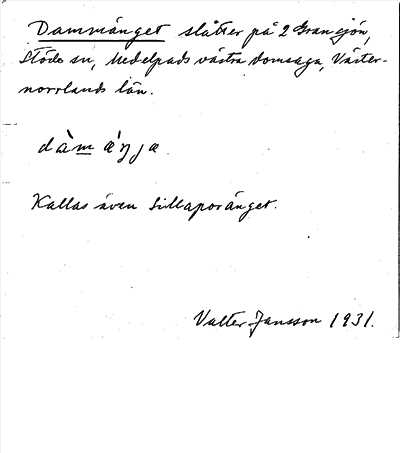 Dammänget slåtter på 2 Gransjön,
Stöde sn, Medelpads västra domsaga, Väster-
norrlands län.
dàm æ´ŋja
Kallas även Sillaporänget.
Valter Jansson 1931.